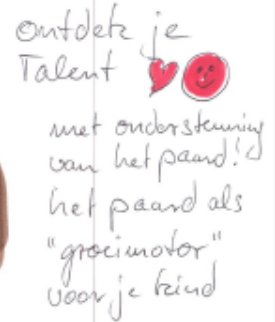 ontdek je
Talent
met ondersteuning
van het paard!
het paard als
"groeimotor"
voor je kind